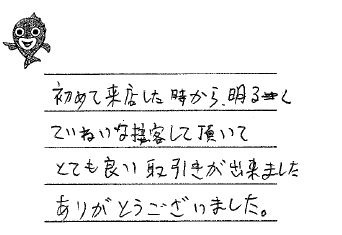 初めて来店した時から、明るく
ていねいな接客して頂いて
とても良い取引きが出来ました
ありがとうございました。